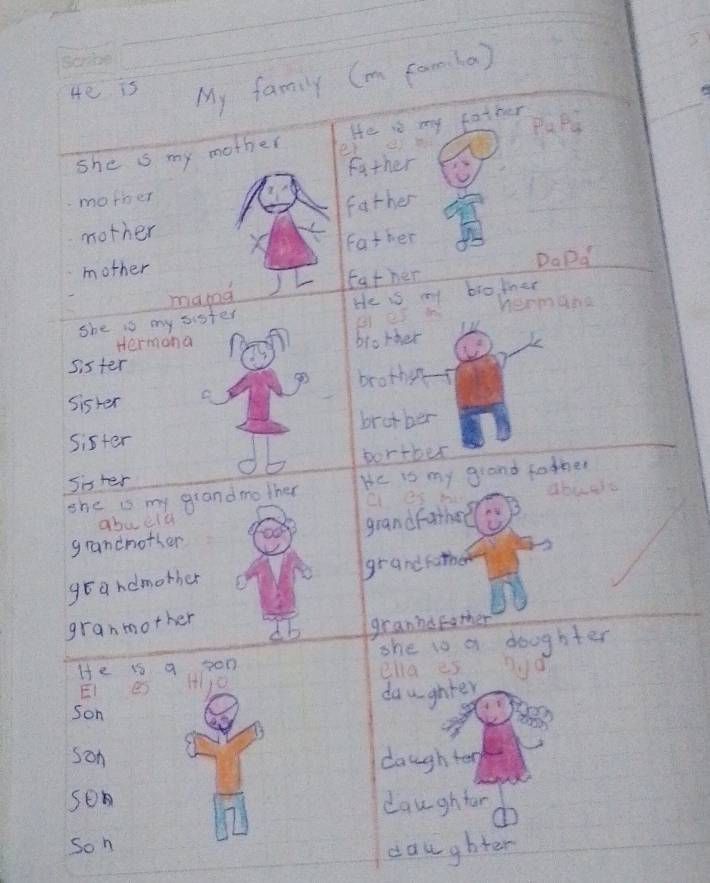 Scribe
He is My family (m familia)
she is my mother
mother
mother
mother
mamá
He is my father
el es mi Papá
Father
Father
Father
Father
Papá
she is my sister
Hermana
Sister
Sister
Sister
Sister
He is my brother
el es mi hermano
brother
brother
brother
borther
she is my grandmother
abuela
grandmother
grandmother
granmother
He is my grand father
el es mi abuelo
grandfather
grandfather
grandfather
He is a son
El es Hijo
Son
Son
Son
Son
she is a doughter
ella es hija
daughter
daughter
daughter
daughter